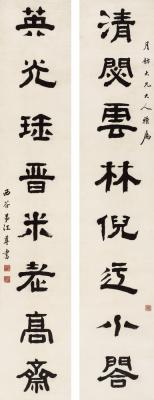 清閟雲林倪迂小閣
月舫大兄大人雅屬
英光珍晉米老高齋
西谷弟江尊書